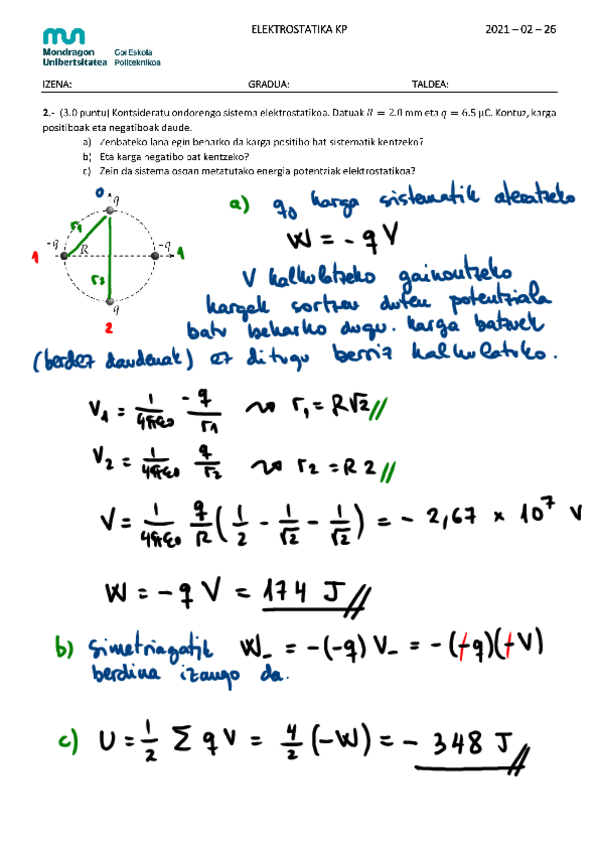 ELEKTROSTATIKA KP
2021 – 02 – 26
Mondragon Unibertsitatea
Goi Eskola Politeknikoa
IZENA: GRADUA: TALDEA:
2.- (3.0 puntu) Kontsideratu ondorengo sistema elektrostatikoa. Datuak R = 2.0 mm eta q = 6.5 µC. Kontuz, karga
positiboak eta negatiboak daude.
a) Zenbateko lana egin beharko da karga positibo bat sistematik kentzeko?
b) Eta karga negatibo bat kentzeko?
c) Zein da sistema osoan metatutako energia potentziala elektrostatikoa?
0 q
r1
-q R -q
1 1
r2
q
2
a) q0 karga sistematik ateratzeko
W = - q V
V kalkulatzeko gainontzeko
kargek sortzen duten potentziala
batu beharko dugu. Karga batzuek
(berdez daudenak) ez ditugu berriz kalkulatuko.
V1 = 1/4πε0 -q/r1 ⇝ r1 = R√2 //
V2 = 1/4πε0 q/r2 ⇝ r2 = R 2 //
V = 1/4πε0 q/R (1/2 - 1/√2 - 1/√2) = - 2,67 × 10^7 V
W = - q V = 174 J //
b) Simetriagatik W- = -(-q) V- = - (+q)(+V)
berdina izango da.
c) U = 1/2 Σ q V = 4/2 (-W) = - 348 J //